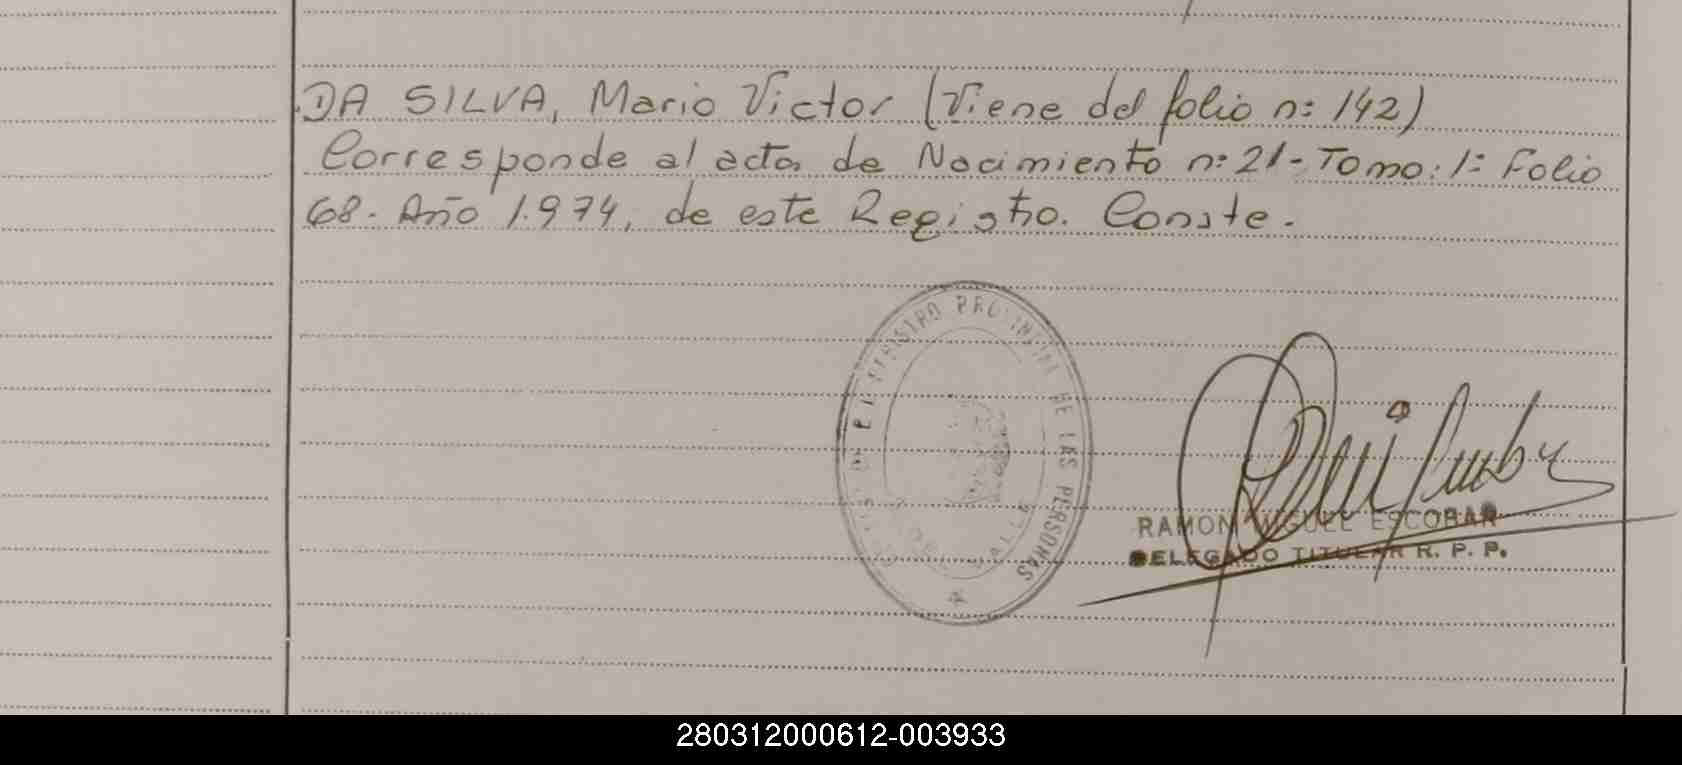 DA SILVA, Mario Victor (Viene del folio n: 142)
Corresponde al acta de Nacimiento n: 21 - Tomo: 1: Folio
68. Año 1.974, de este Registro. Conste.
REGISTRO PROVINCIAL DE LAS PERSONAS
RAMON MIGUEL ESCOBAR
DELEGADO TITULAR R. P. P.
280312000612-003933